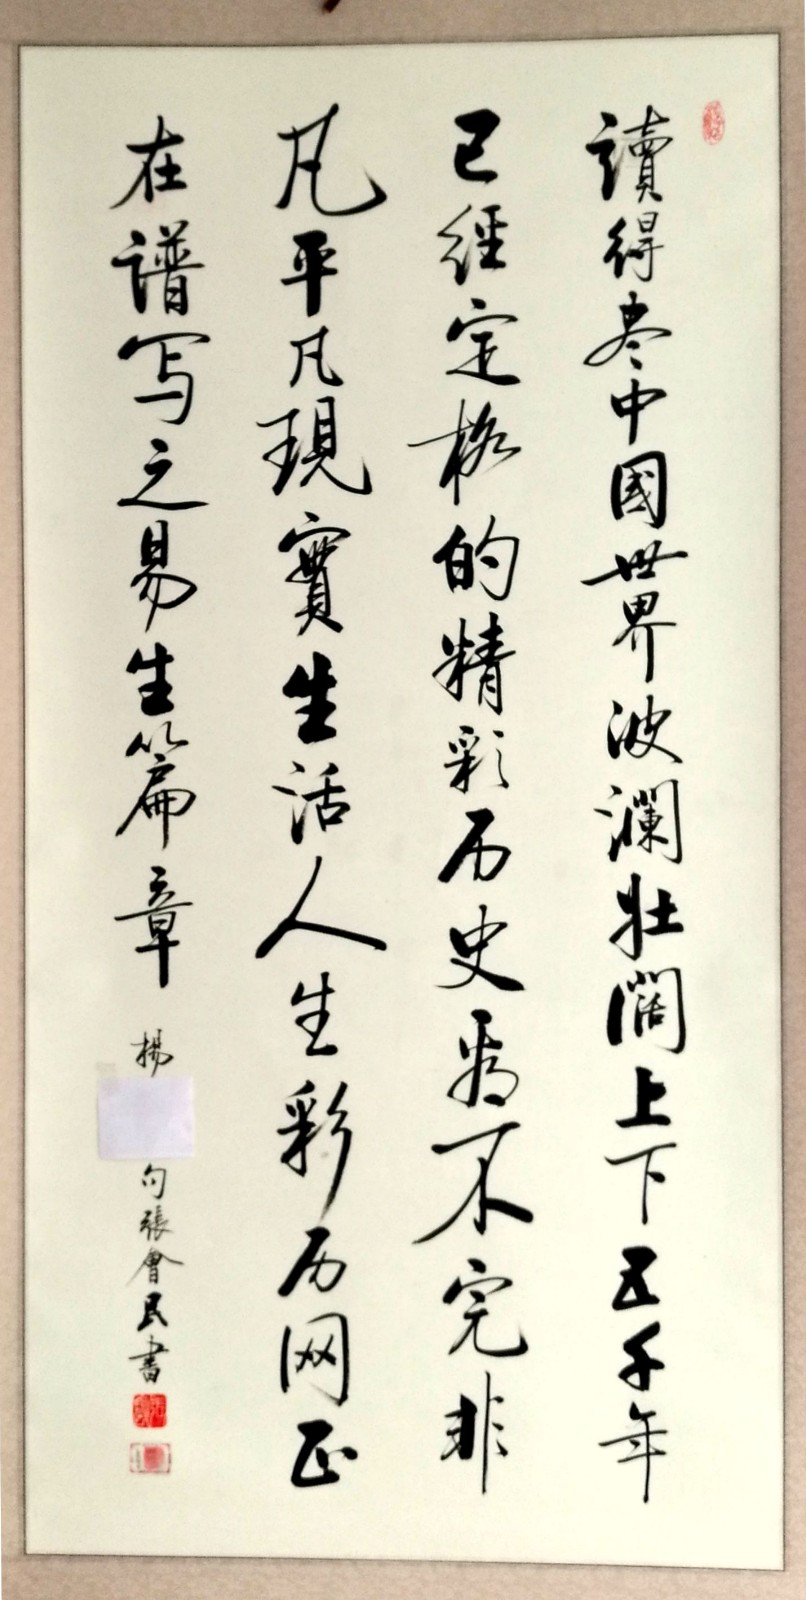 讀得尽中國世界波瀾壮闊上下五千年
已經定格的精彩历史看不完非
凡平凡現實生活人生彩历网正
在谱写之易生篇章
楊
句張會民書